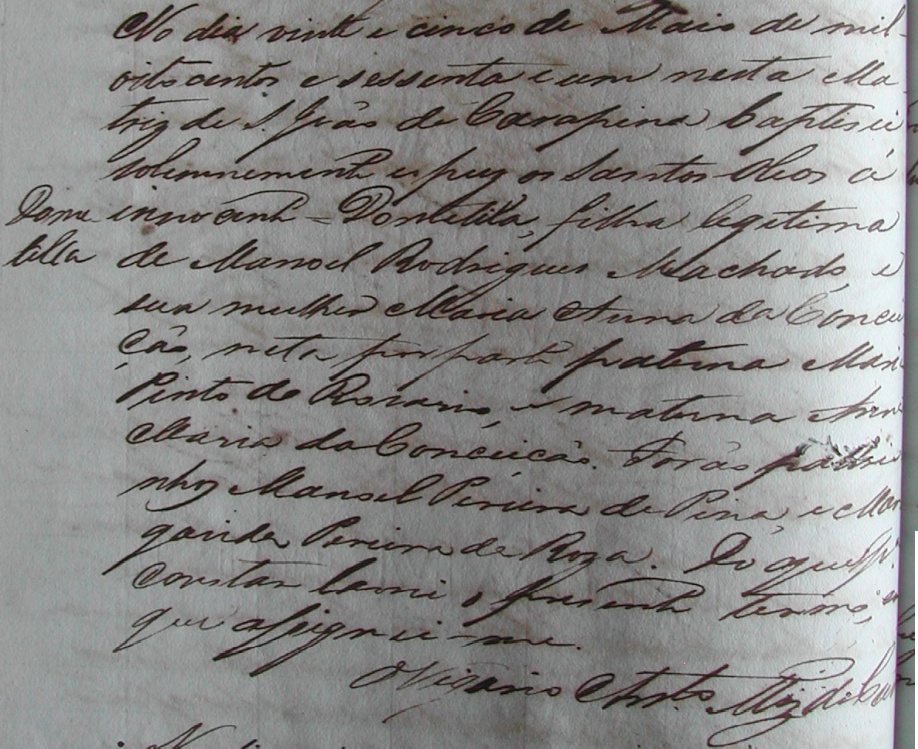 No dia vinte e cinco de Maio de mil
oitocentos e sessenta e um nesta Ma
triz de S. João de Carapina baptisei
solemnemente e puz os Santos Oleos á
Dome innocente Domitilla, filha legitima
tilla de Manoel Rodrigues Machado, e
sua mulher Maria Anna da Concei
ção, neta por parte paterna Maria
Pinto do Rosario, e materna Anna
Maria da Conceição. Forão padri
nhos Manoel Pereira de Pina, e Mar
garida Pereira da Roza. Do que p.ª
constar lavrei o presente termo, em
que assignei-me.
O Vigario Anto. Miz de